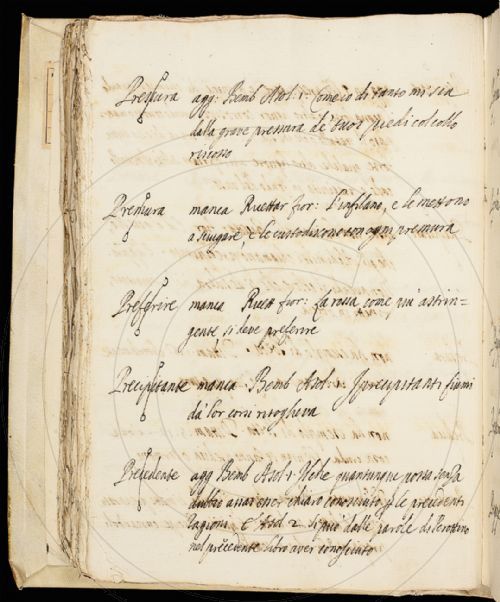 Pressura agg: Bemb Asol: 1: Come io di tanto mi sia
dalla grave pressura de' suoi piedi col collo
riscosso
Premura manca Ricettar fior: L'infilano, e le mettono
a sciugare, e le custodiscono con ogni premura
Preferire manca Ricett fior: La rossa, come piu' astrin=
gente, si deve preferire
Precipitante manca: Bemb Asol: 1: I precipitanti fiumi
da' lor corsi ritoglieva
Precedente agg Bemb Asol 1 Il che quantunque possa senza
dubbio assai esser chiaro conosciuto p le precedenti
ragioni E Asol 2 si può dalle parole di Perottino
nel precedente libro aver conosciuto